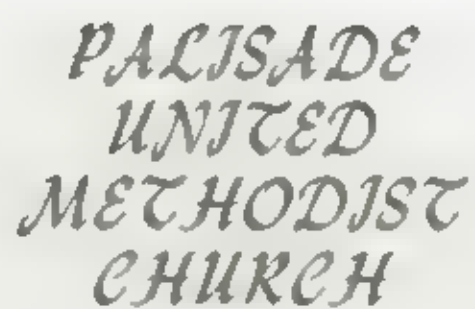 PALISADE
UNITED
METHODIST
CHURCH